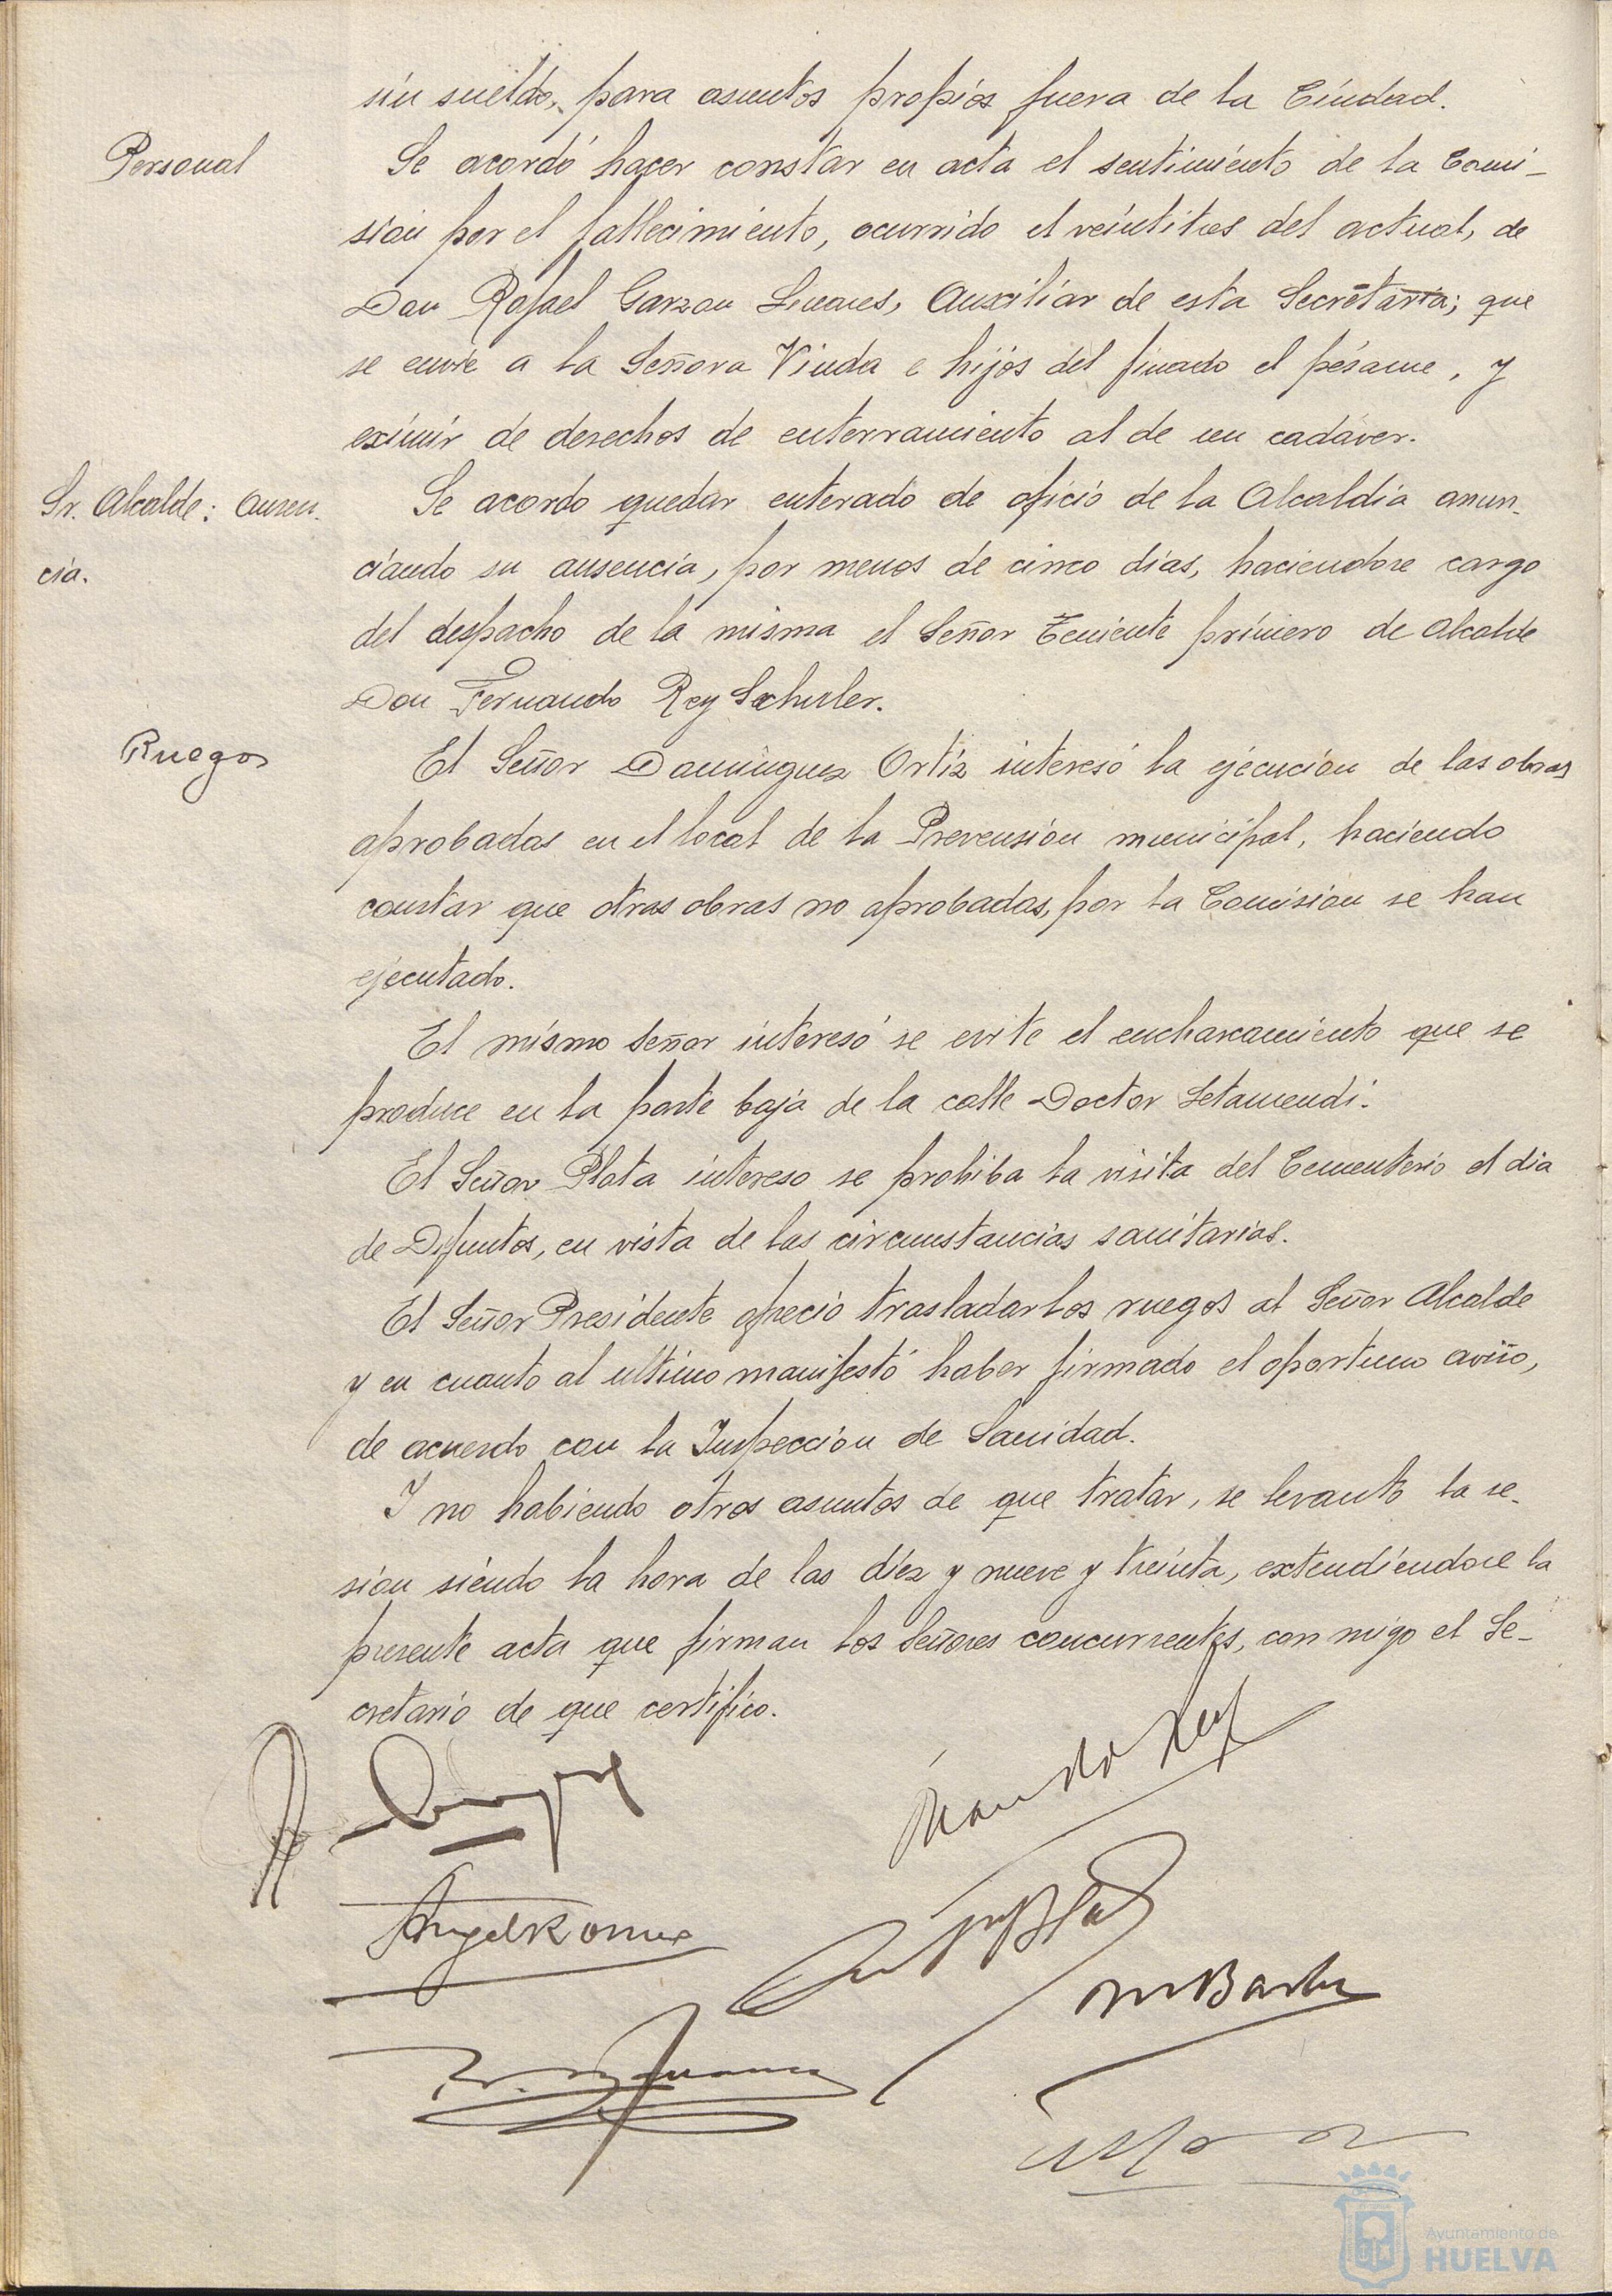 sin sueldo, para asuntos propios fuera de la Ciudad.
Personal
Se acordó hacer constar en acta el sentimiento de la Comi-
sion por el fallecimiento, ocurrido el veintitres del actual, de
Don Rafael Garzon Linares, Auxiliar de esta Secretaría; que
se envíe a la Señora Viuda e hijos del finado el pésame, y
eximir de derechos de enterramiento al de un cadáver.
Sr. Alcalde: Ausen-
cia.
Se acordo quedar enterado de oficio de la Alcaldía anun-
ciando su ausencia, por menos de cinco días, haciendose cargo
del despacho de la misma el Señor Teniente primero de Alcalde
Don Fernando Rey
Ruegos
El Señor Dominguez Ortiz interesó la ejecución de las obras
aprobadas en el local de la Prevensión municipal, haciendo
constar que otras obras no aprobadas, por la Comisión se han
ejecutado.
El mismo Señor interesó se evite el encharcamiento que se
produce en la parte baja de la calle Doctor Letamendi.
El Señor Plata intereso se prohiba la visita del Cementerio el dia
de Difuntos, en vista de las circunstancias sanitarias.
El Señor Presidente ofrecio trasladar los ruegos al Señor Alcalde
y en cuanto al ultimo manifestó haber firmado el oportuno aviso,
de acuerdo con la Inspección de Sanidad.
Y no habiendo otros asuntos de que tratar, se levanto la se-
sion siendo la hora de las diez y nueve y treinta, extendiendose la
presente acta que firman los Señores concurrentes, con migo el Se-
cretario de que certifico.
Rey
M Barba
Ayuntamiento de
HUELVA